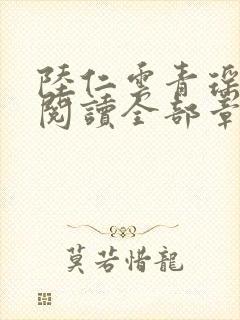 陸仁雲青瑤
閱讀全部章
莫若惜龍